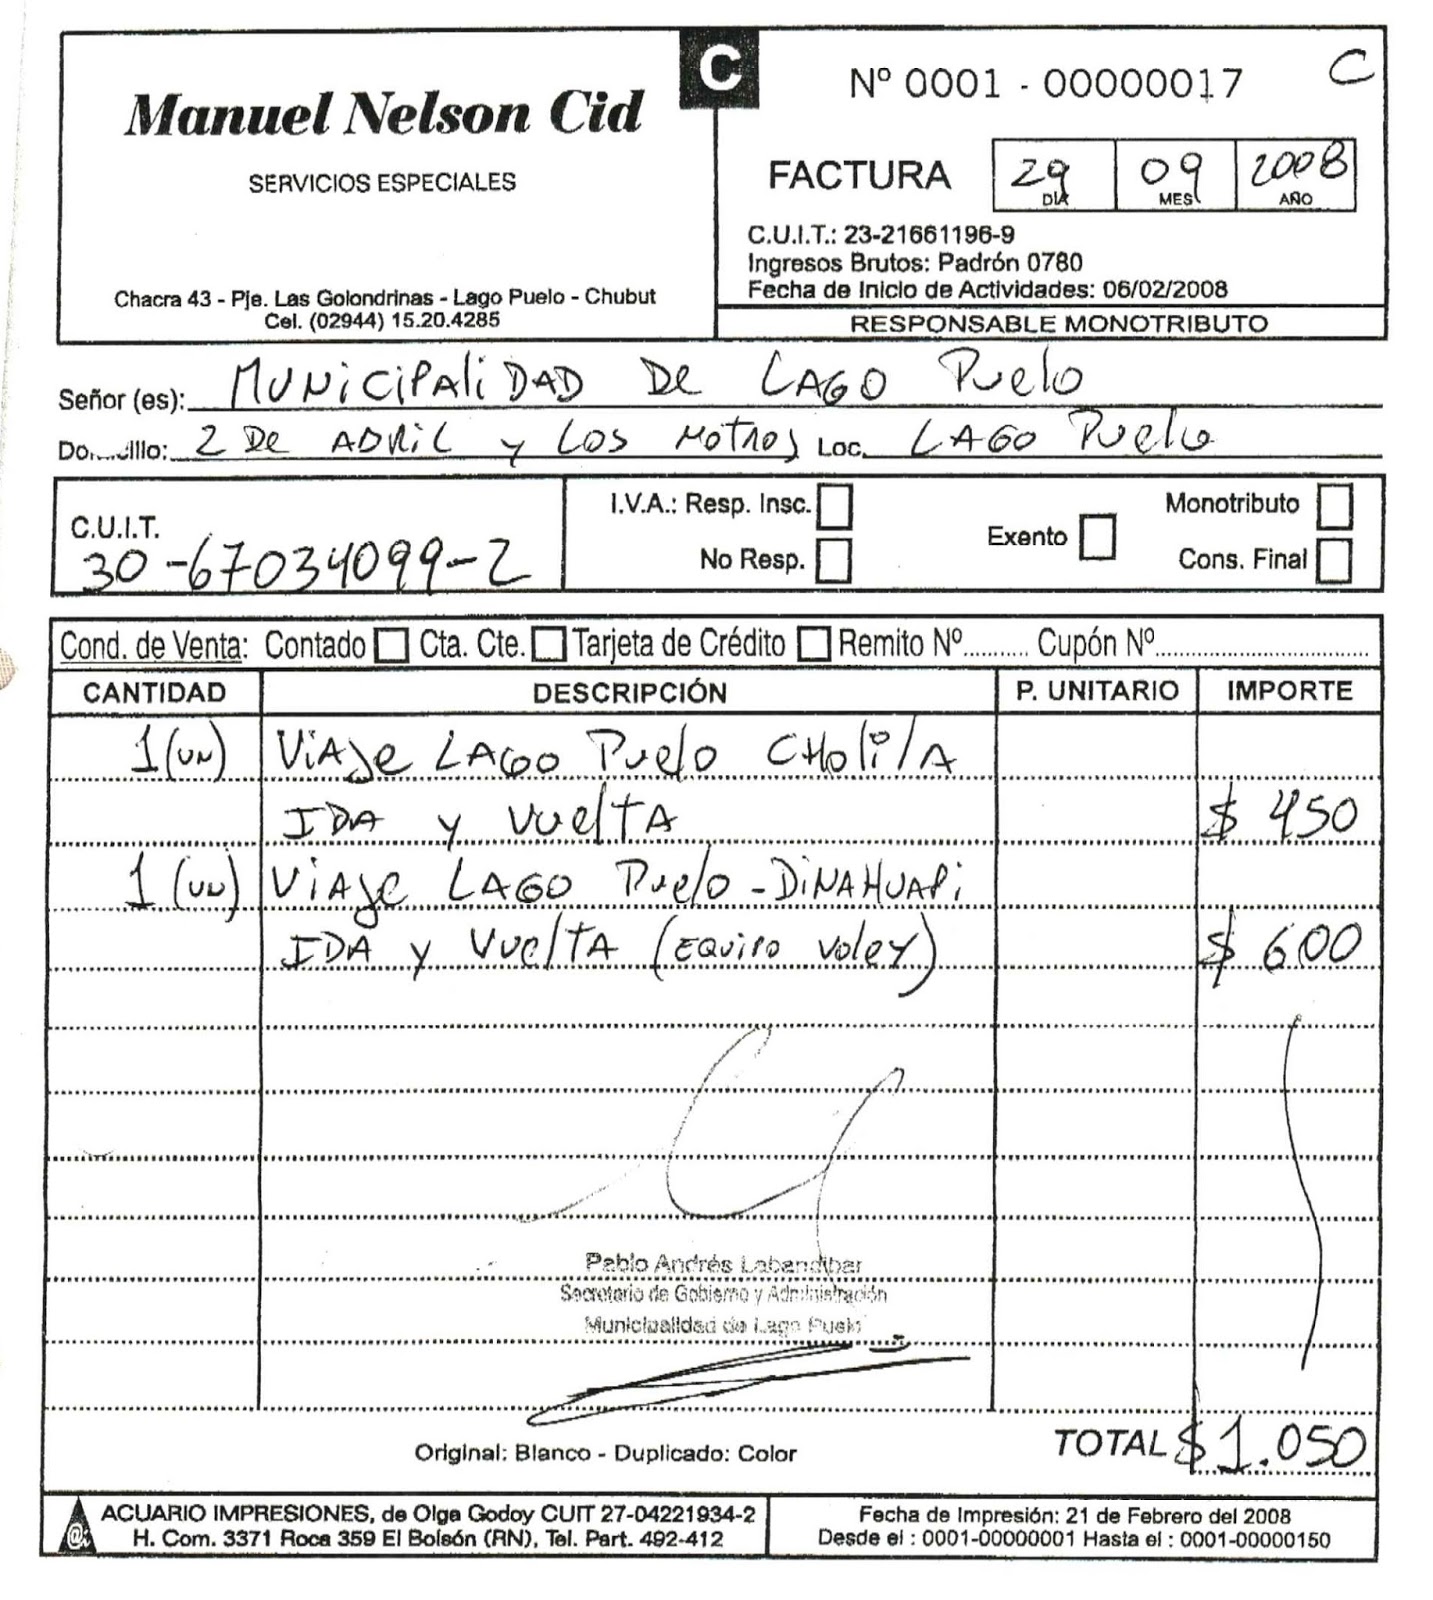 C
Manuel Nelson Cid
SERVICIOS ESPECIALES
Chacra 43 - Pje. Las Golondrinas - Lago Puelo - Chubut
Cel. (02944) 15.20.4285
Nº 0001 - 00000017 C
FACTURA 29 09 2008
DÍA MES AÑO
C.U.I.T.: 23-21661196-9
Ingresos Brutos: Padrón 0780
Fecha de Inicio de Actividades: 06/02/2008
RESPONSABLE MONOTRIBUTO
Señor (es): MUNiCiPAliDAD De LAGO Puelo
Domicilio: 2 De ABRiL y LOS NOTROS Loc. LAGO Puelo
C.U.I.T.
30-67034099-2
I.V.A.: Resp. Insc. Exento Monotributo
No Resp. Cons. Final
Cond. de Venta: Contado Cta. Cte. Tarjeta de Crédito Remito Nº........... Cupón Nº...................................
CANTIDAD DESCRIPCIÓN P. UNITARIO IMPORTE
1 (UN) ViAJe LAGO Puelo CHolilA
IDA y VuelTA $ 450
1 (UN) ViAJe LAGO Puelo - DiNAHUAPi
IDA y VuelTA (EQUiPO Voley) $ 600
Pablo Andrés Labandibar
Secretario de Gobierno y Administración
Municipalidad de Lago Puelo
Original: Blanco - Duplicado: Color TOTAL $ 1.050
@i ACUARIO IMPRESIONES, de Olga Godoy CUIT 27-04221934-2
H. Com. 3371 Roca 359 El Bolsón (RN), Tel. Part. 492-412
Fecha de Impresión: 21 de Febrero del 2008
Desde el : 0001-00000001 Hasta el : 0001-00000150